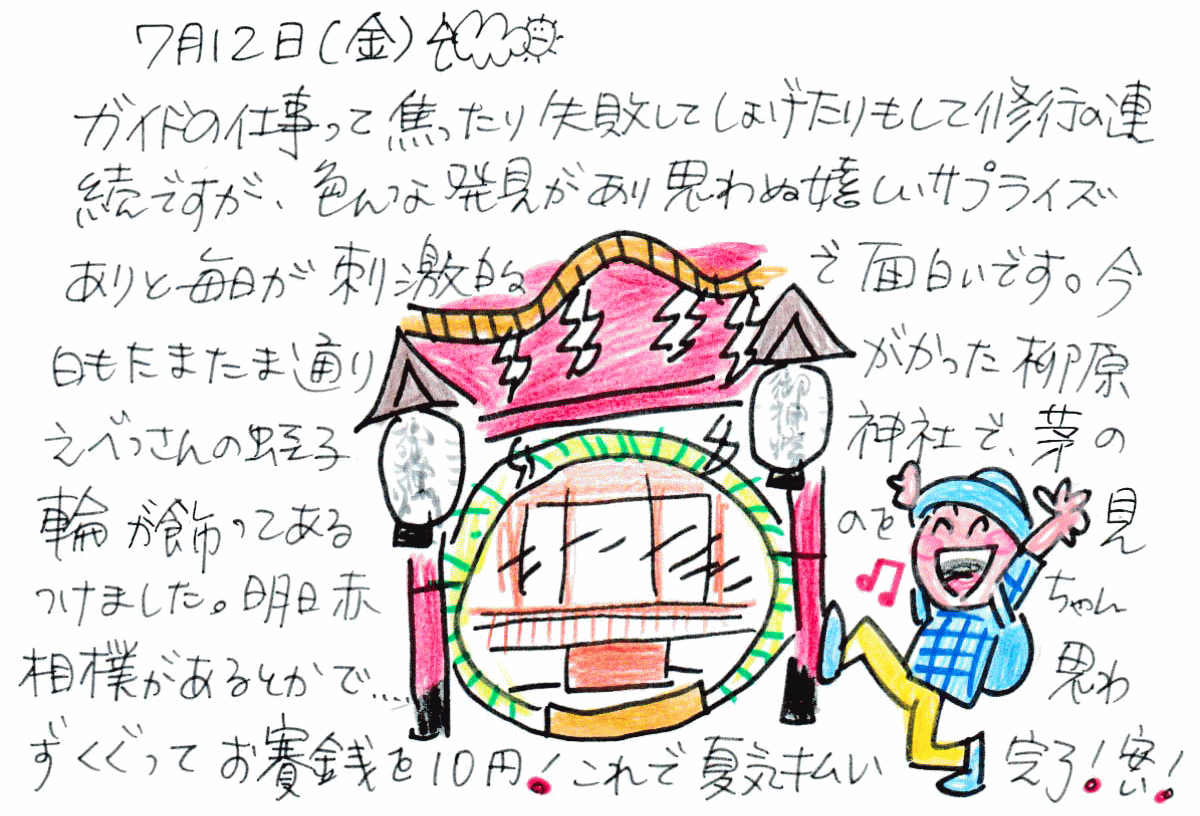 7月12日(金)
ガイドの仕事って焦ったり失敗してしょげたりもして修行の連
続ですが、色んな発見があり思わぬ嬉しいサプライズ
ありと毎日が刺激的で面白いです。今
日もたまたま通りがかった柳原
えべっさんの蛭子神社で、茅の
輪が飾ってあるのを見
つけました。明日赤ちゃん
相撲があるとかで....思わ
ずくぐってお賽銭を10円!これで夏気払い完了!安い!
御神燈